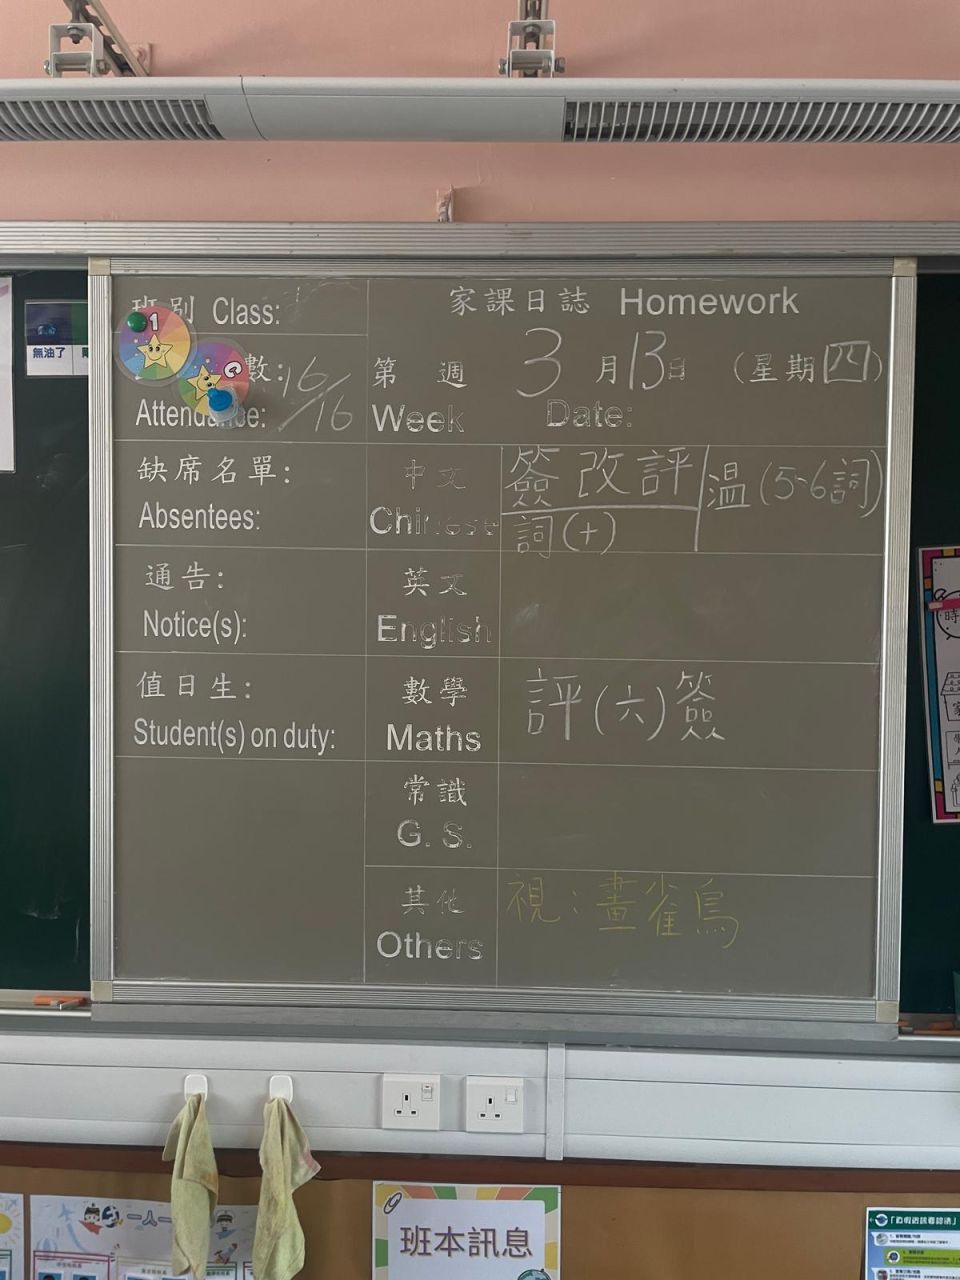 班別 Class:
家課日誌 Homework
數: 16/16
Attendance:
第 週
Week
3月13日 (星期四)
Date:
缺席名單:
Absentees:
中文
Chinese
簽 改評
詞(十)
温(5-6詞)
通告:
Notice(s):
英文
English
值日生:
Student(s) on duty:
數學
Maths
評(六)簽
常識
G. S.
其他
Others
視:畫雀鳥
無油了
1
時
班本訊息